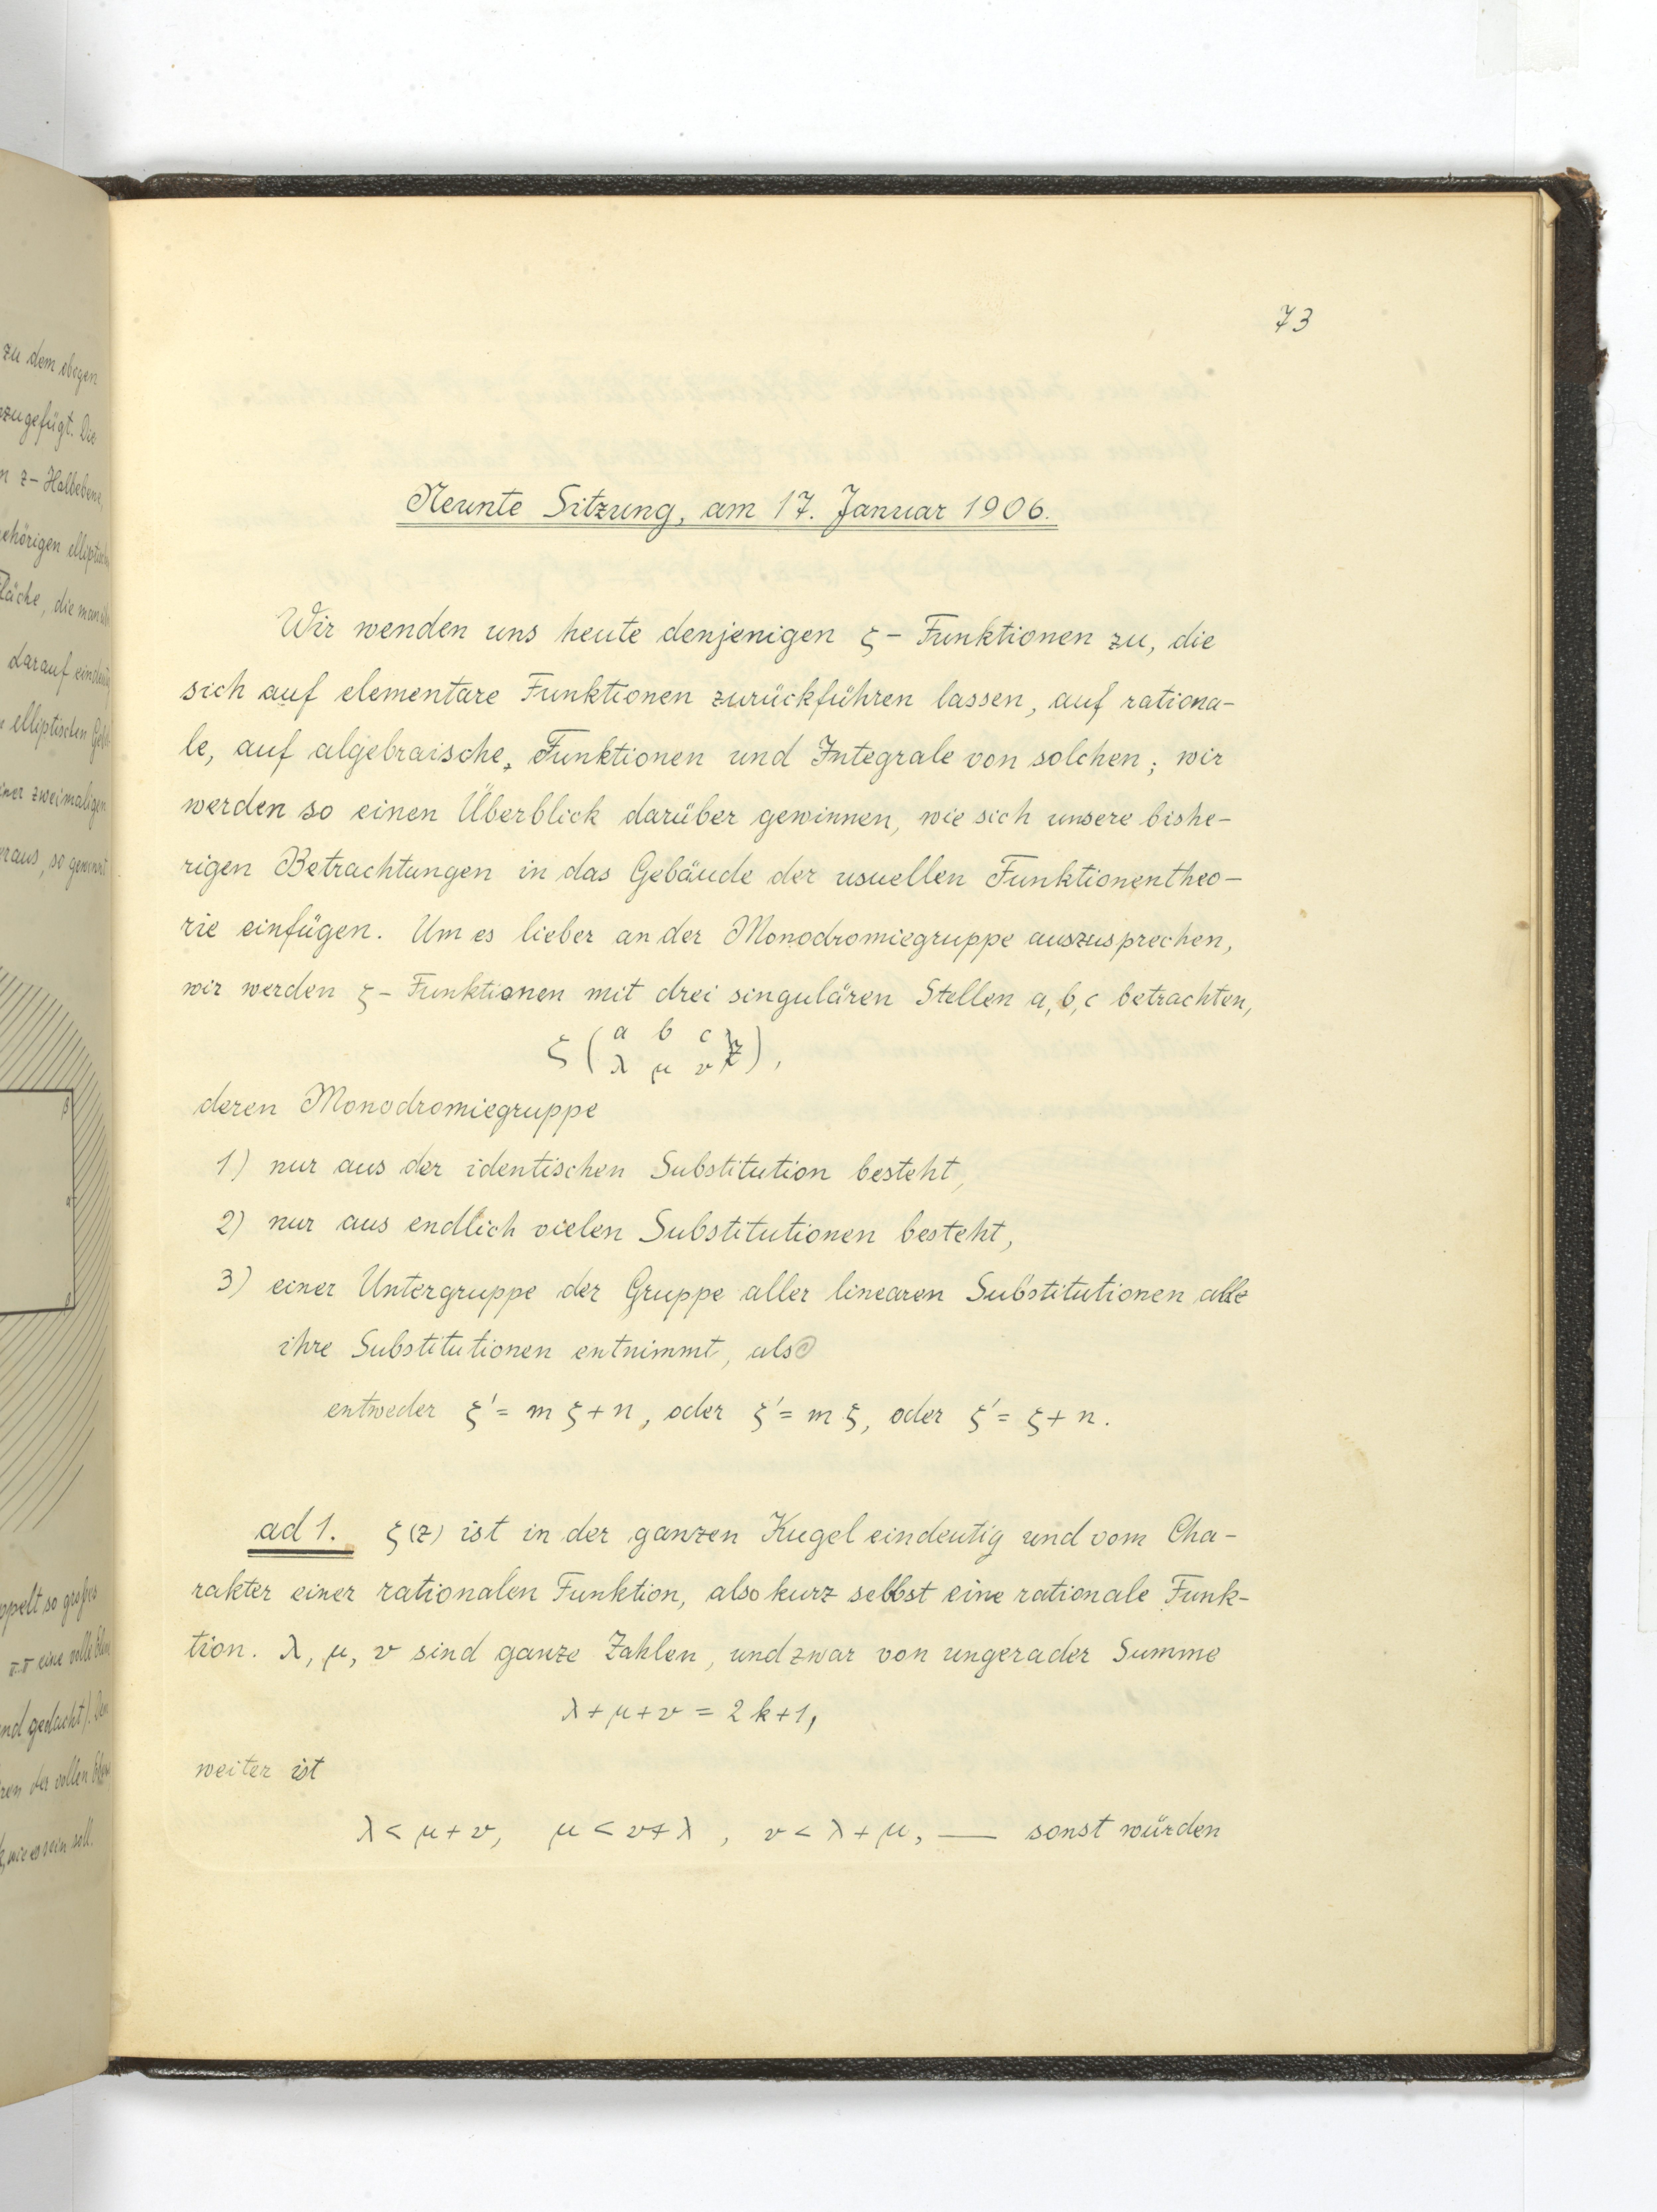 zu dem obigen
zugefügt. Die
z- Halbebene,
ehörigen elliptisch
läche, die man
darauf eindeutig
elliptischen
iner zweimaligen
raus, so gewinnt
ppelt so großes
eine volle
nd gedacht).
der vollen
wie es sein soll.
73
Neunte Sitzung, am 17. Januar 1906.
Wir wenden uns heute denjenigen ζ- Funktionen zu, die
sich auf elementare Funktionen zurückführen lassen, auf rationa-
le, auf algebraische, Funktionen und Integrale von solchen; wir
werden so einen Überblick darüber gewinnen, wie sich unsere bishe-
rigen Betrachtungen in das Gebäude der usuellen Funktionentheo-
rie einfügen. Um es lieber an der Monodromiegruppe auszusprechen,
wir werden ζ- Funktionen mit drei singulären Stellen a, b, c betrachten,
ζ ( a b c z
λ μ ν ),
deren Monodromiegruppe
1) nur aus der identischen Substitution besteht,
2) nur aus endlich vielen Substitutionen besteht,
3) einer Untergruppe der Gruppe aller linearen Substitutionen alle
ihre Substitutionen entnimmt, also
entweder ζ' = m ζ + n, oder ζ' = m ζ, oder ζ' = ζ + n.
ad 1. ζ(z) ist in der ganzen Kugel eindeutig und vom Cha-
rakter einer rationalen Funktion, also kurz selbst eine rationale Funk-
tion. λ, μ, ν sind ganze Zahlen, und zwar von ungerader Summe
λ + μ + ν = 2 k + 1,
weiter ist
λ < μ + ν, μ < ν + λ, ν < λ + μ, — sonst würden